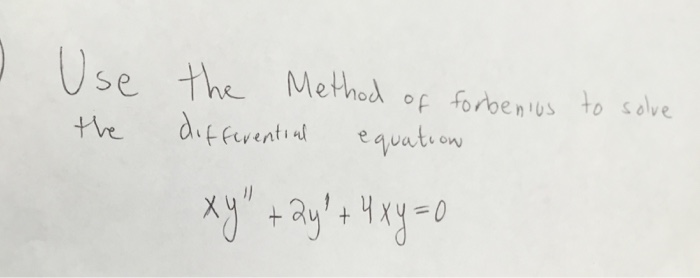 ) Use the Method of forbenius to solve
the differential equation
xy" + 2y' + 4xy=0